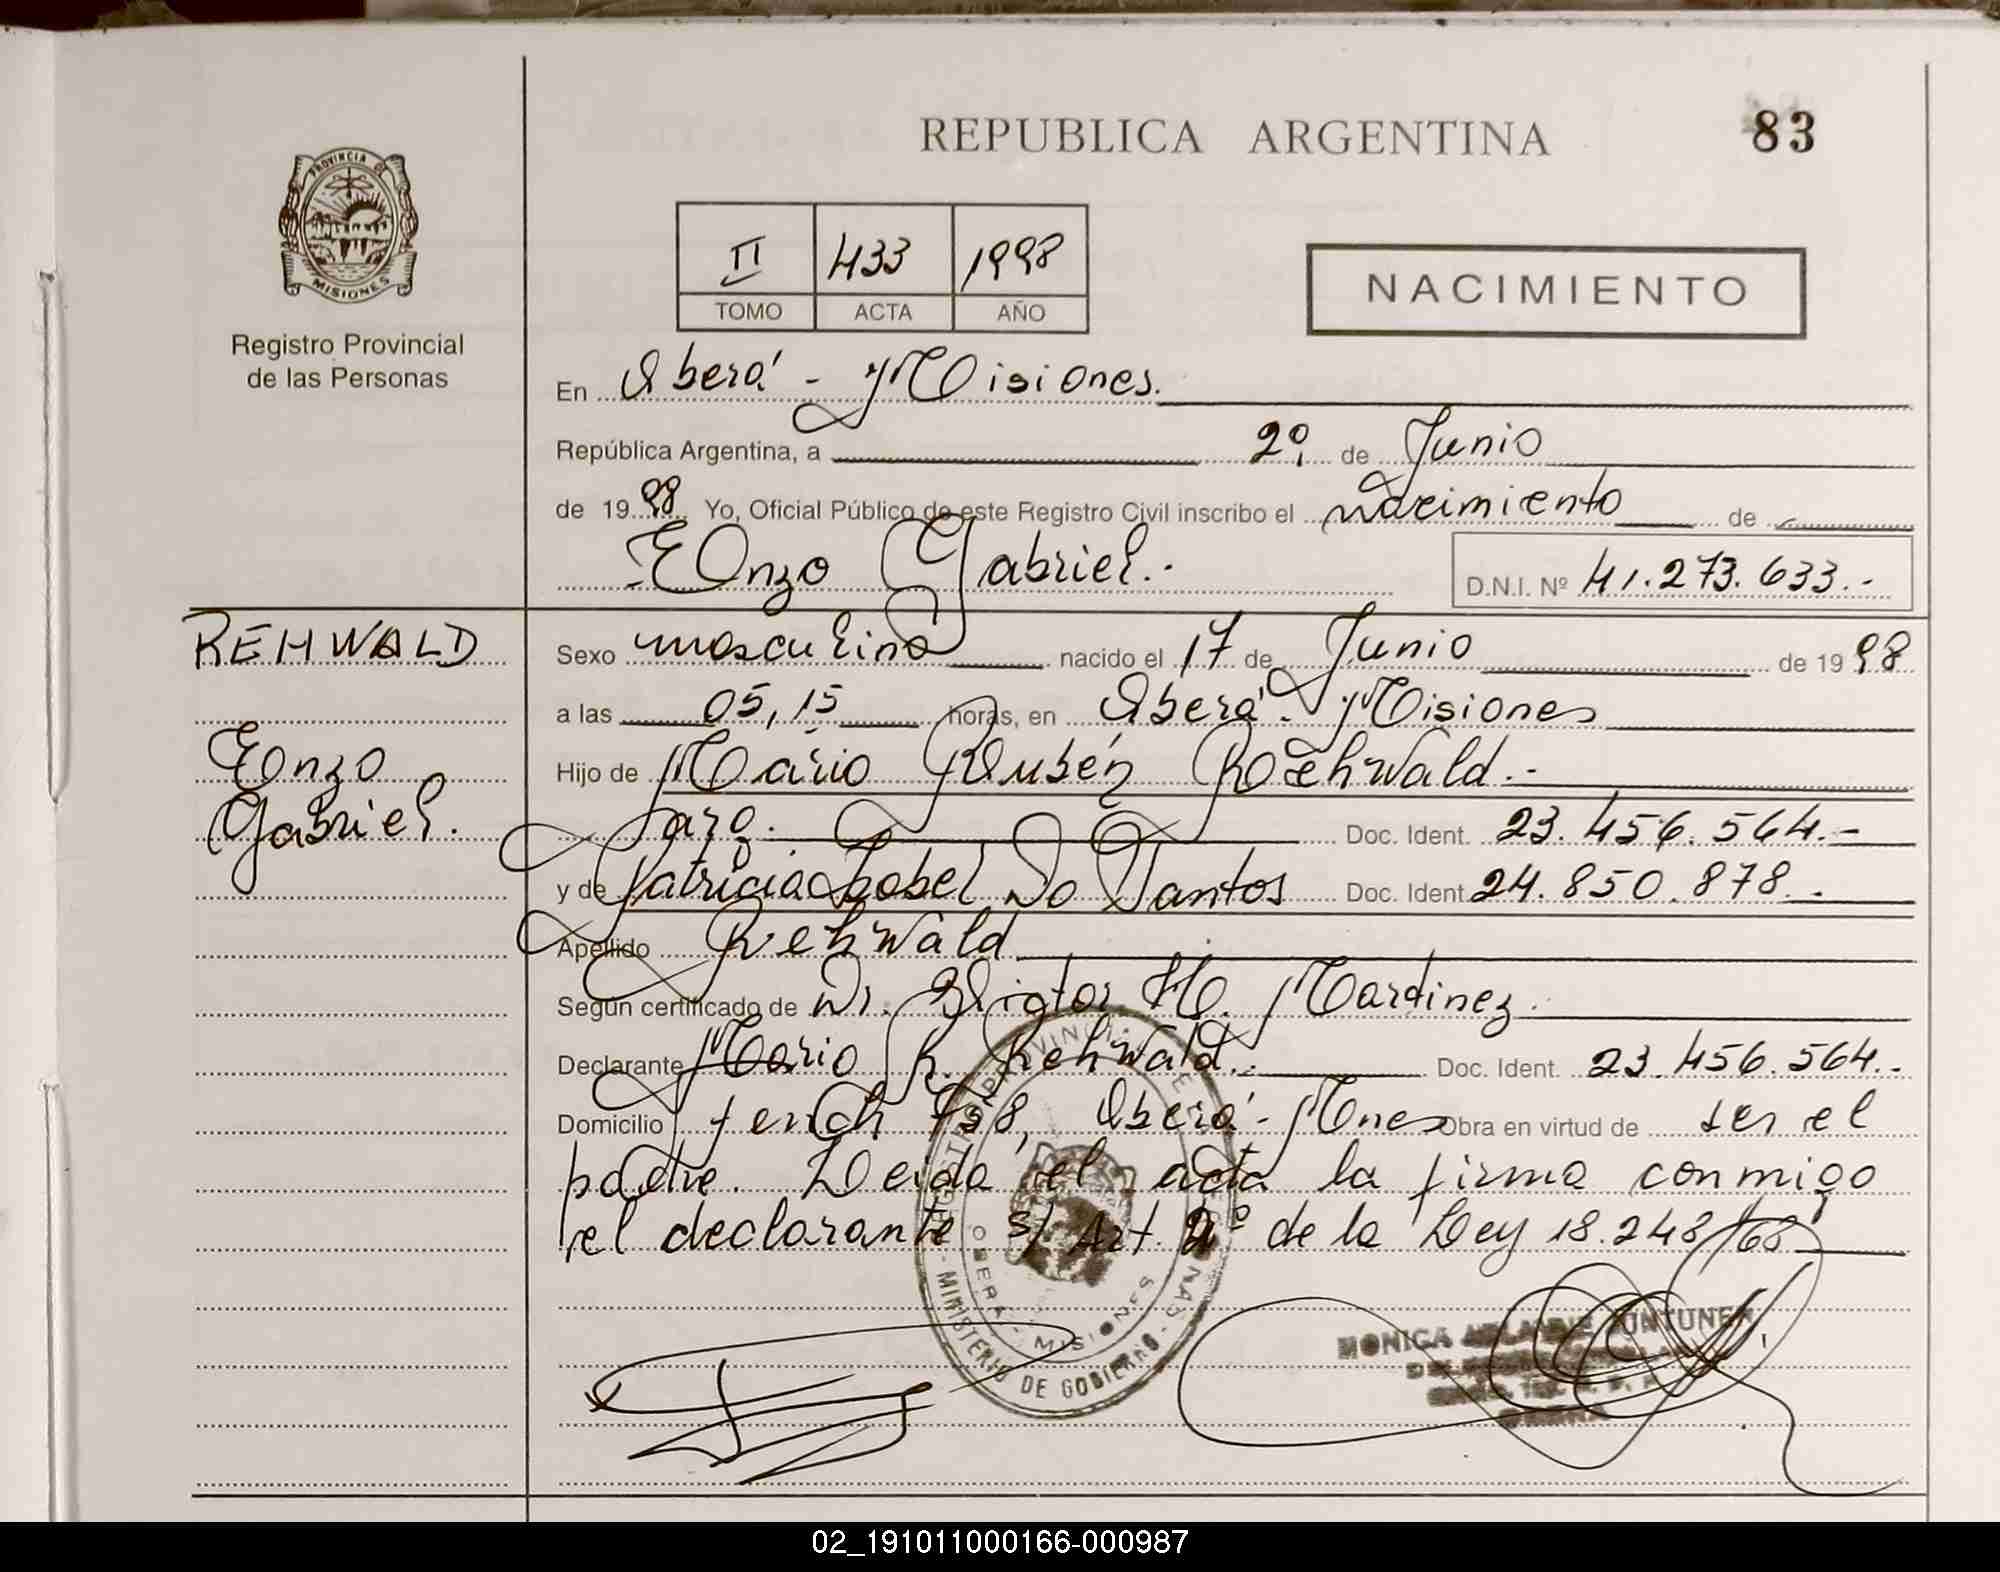 REPUBLICA ARGENTINA
83
PROVINCIA DE
MISIONES
Registro Provincial
de las Personas
II 433 1998
TOMO ACTA AÑO
NACIMIENTO
En Oberá - Misiones.
República Argentina, a 2º de Junio
de 1998 Yo, Oficial Público de este Registro Civil inscribo el nacimiento de
Enzo Gabriel.-
D.N.I. Nº 41.273.633.-
REHWALD
Enzo
Gabriel.
Sexo masculino nacido el 17 de Junio de 1998
a las 05,15 horas, en Oberá - Misiones
Hijo de Mario Rubén Rehwald.-
Doc. Ident. 23.456.564.-
y de Patricia Isabel Do Santos Doc. Ident. 24.850.878.-
Apellido Rehwald
Según certificado de Dr. Victor H. Martinez.
Declarante Mario R. Rehwald.- Doc. Ident. 23.456.564.-
Domicilio 758, Oberá - Mnes Obra en virtud de ser el
padre. Leida el acta la firma conmigo
el declarante s/ Art. 2º de la Ley 18.248/68
OBERA - MISIONES
MINISTERIO DE GOBIERNO
MONICA
02_191011000166-000987